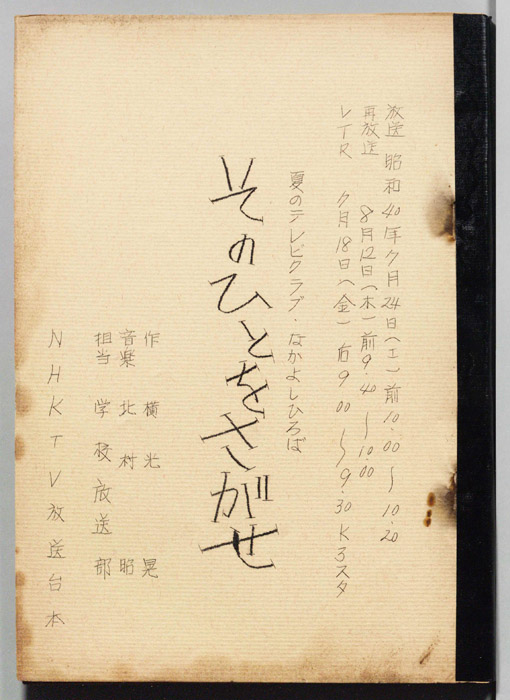 放送 昭和40年7月24日(土)前10.00～10.20
再放送 8月12日(木)前9.40～10.00
VTR 7月18日(金)后9.00～9.30 K3スタ
夏のテレビクラブ・なかよしひろば
そのひとをさがせ
作 横光 晃
音楽 北村 昭
担当 学校放送部
NHKTV放送台本